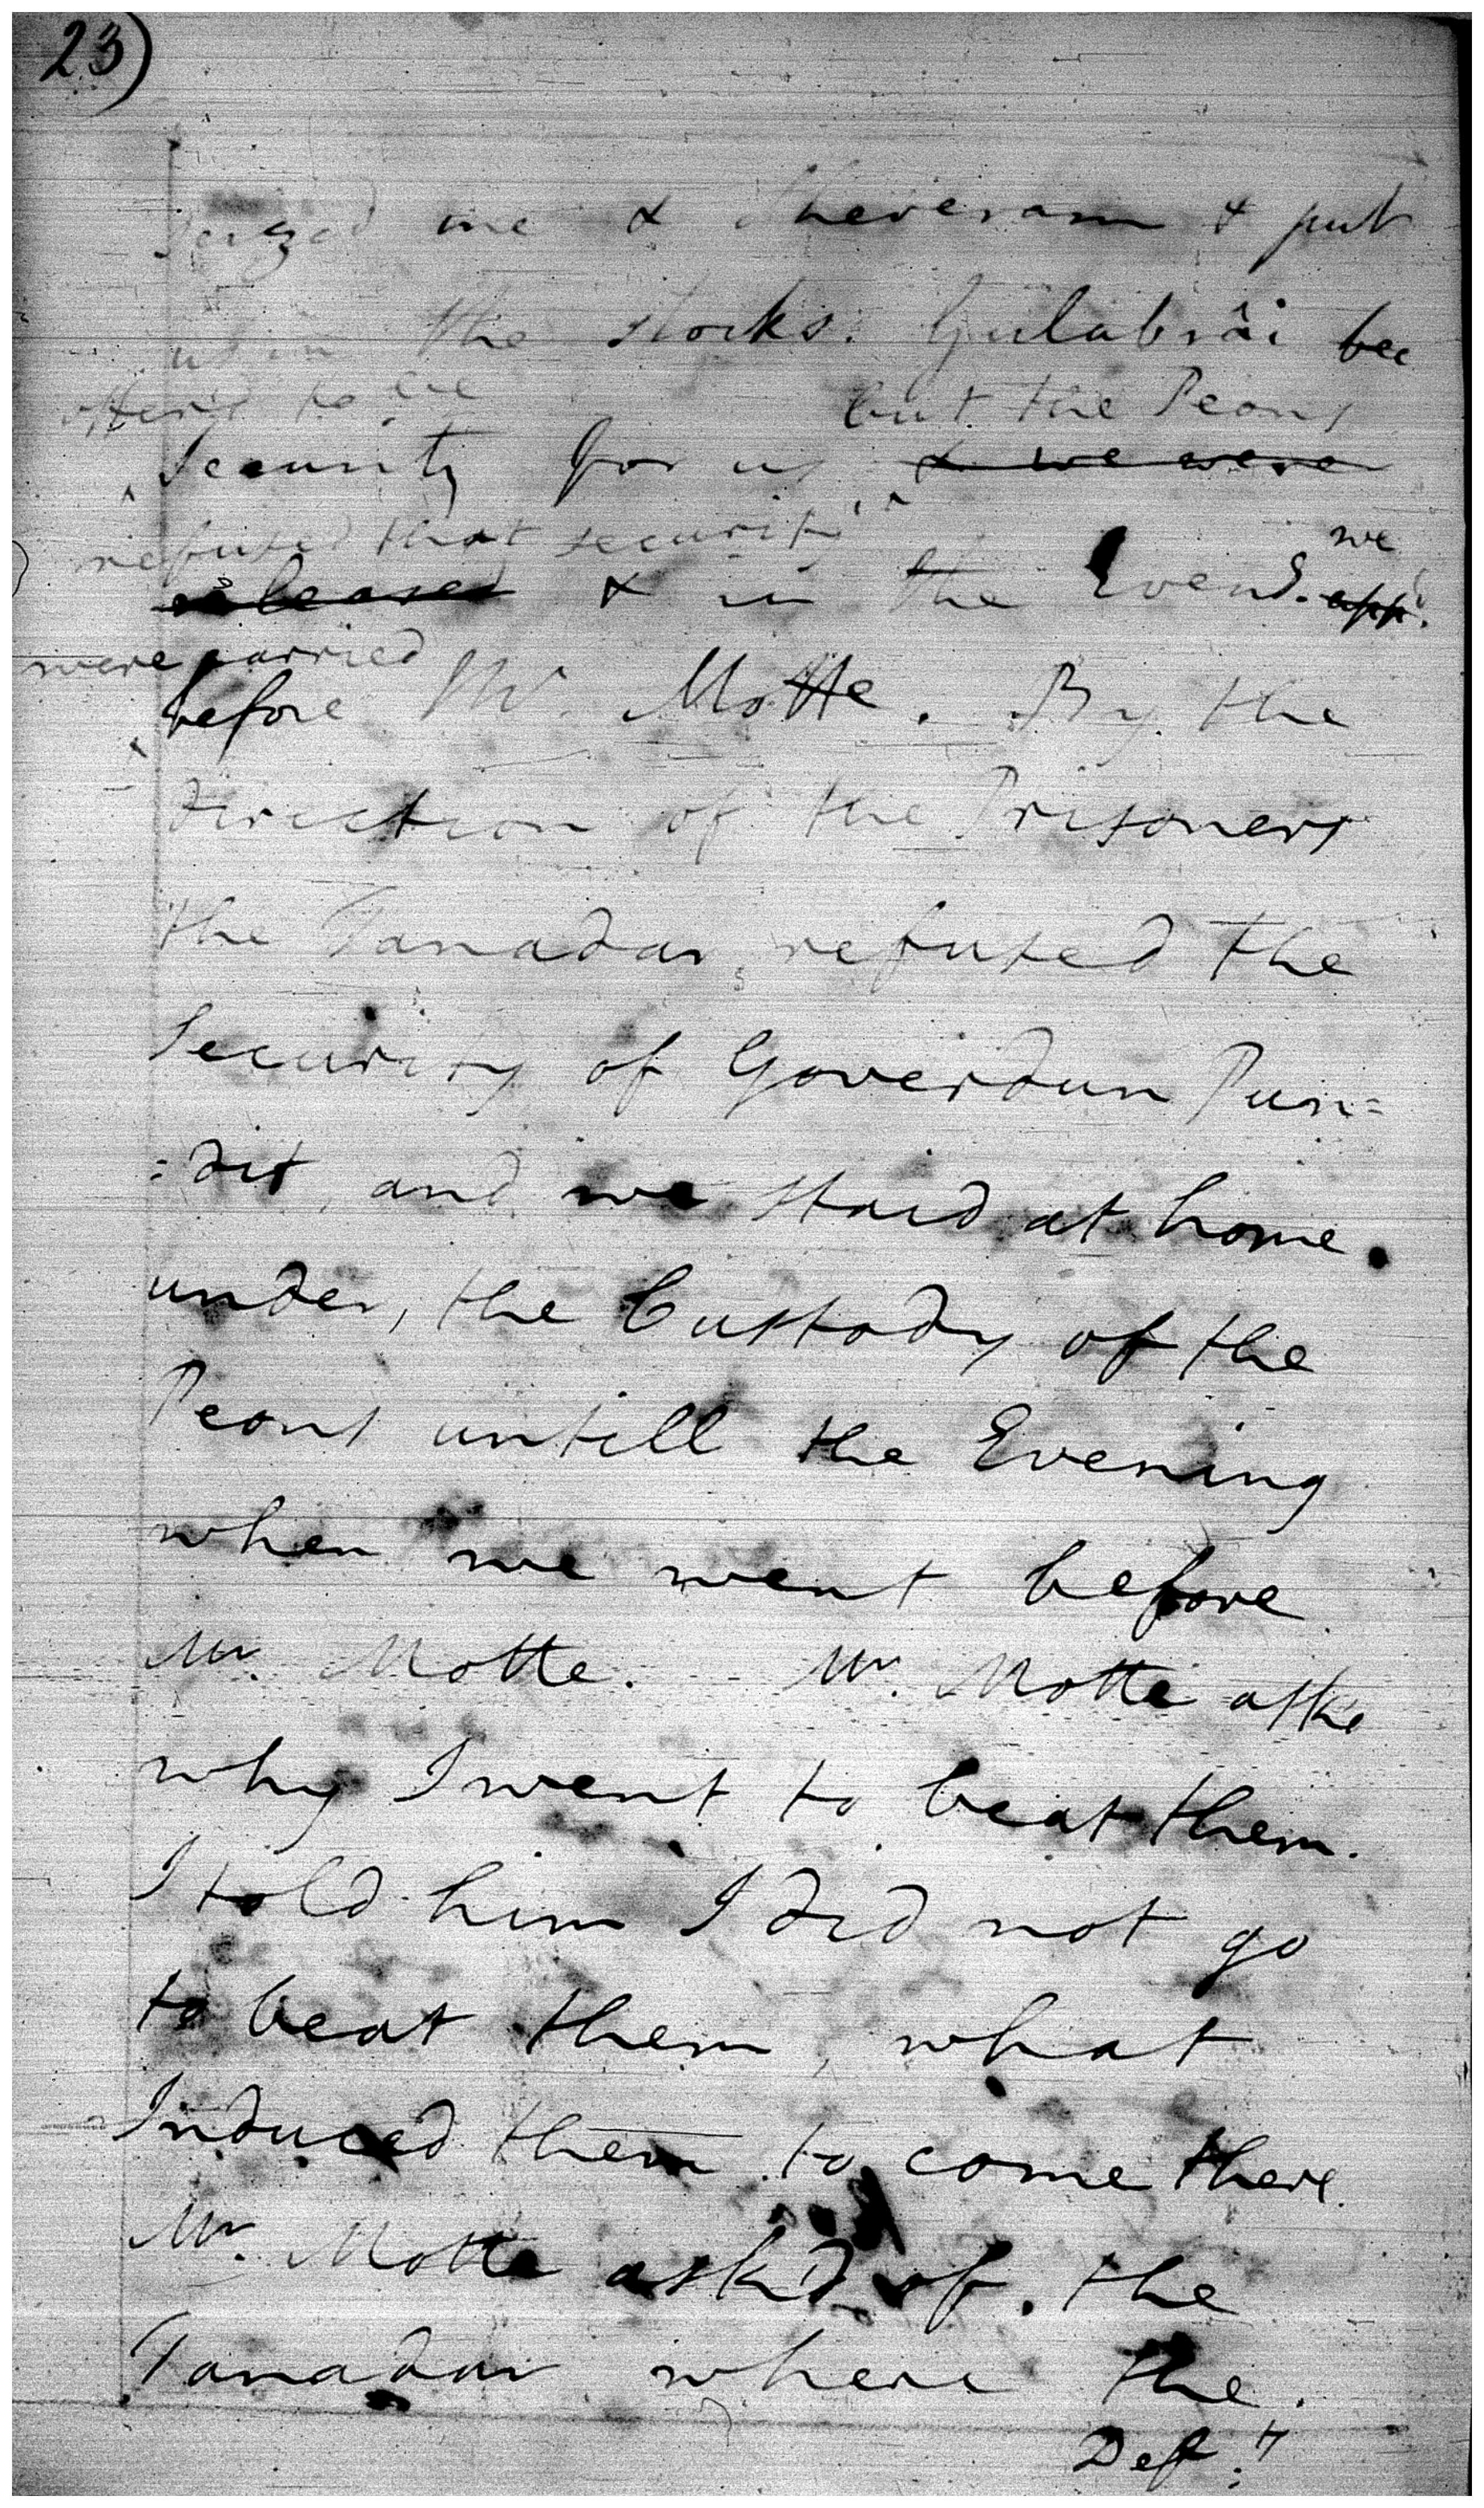 23)
seized me & Sheveram & put
us in the stocks. Gulabrâi bec
offer'd to be but the Peons
Security for us & we were
refused that security we
released & in the Eveng. app.d
were carried
before Mr. Motte. By the
direction of the Prisoners
the Tanadar refused the
Security of Goverdun Pun=
=dit, and we staid at home
under, the Custody of the
Peons untill the Evening
when we went before
Mr. Motte. Mr. Motte aske
why I went to beat them.
I told him I did not go
to beat them, what
Induced them to come there.
Mr. Motte ask'd of the
Tanadar where the
Deft.s